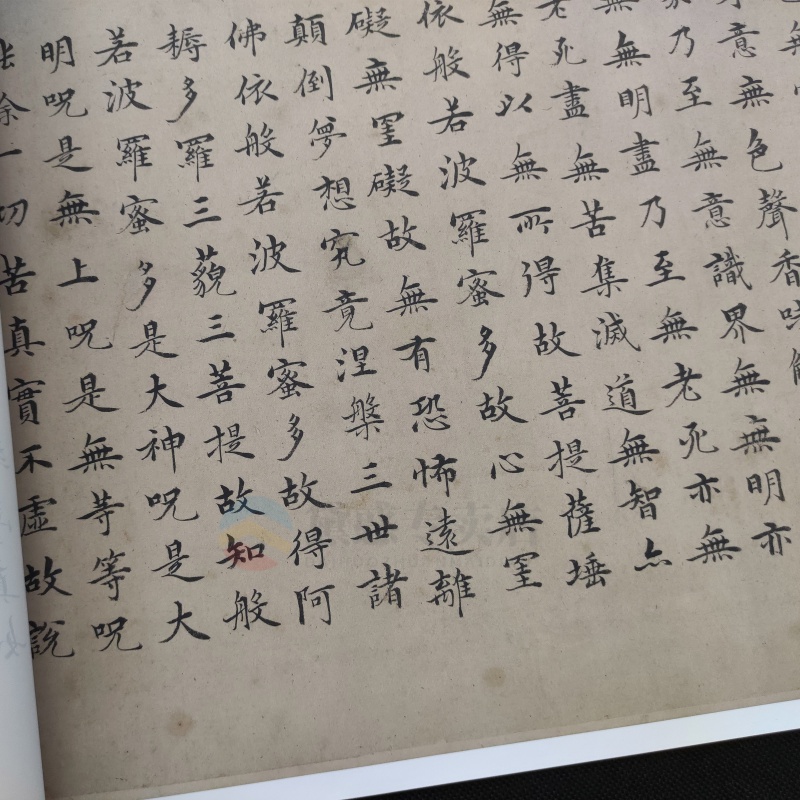 意無色聲香味
乃至無意識界無無明亦
無明盡乃至無老死亦無
老死盡無苦集滅道無智亦
無得以無所得故菩提薩埵
依般若波羅蜜多故心無罣
礙無罣礙故無有恐怖遠離
顛倒夢想究竟涅槃三世諸
佛依般若波羅蜜多故得阿
耨多羅三藐三菩提故知般
若波羅蜜多是大神呪是大
明呪是無上呪是無等等呪
除一切苦真實不虛故說